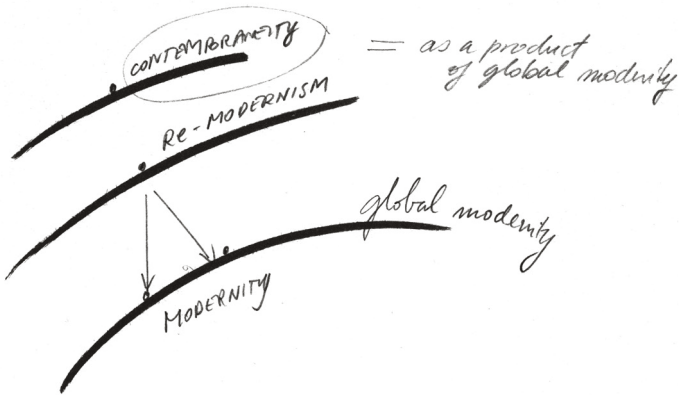 CONTEMPORANEITY
= as a product
of global modernity
Re-MODERNISM
global modernity
MODERNITY